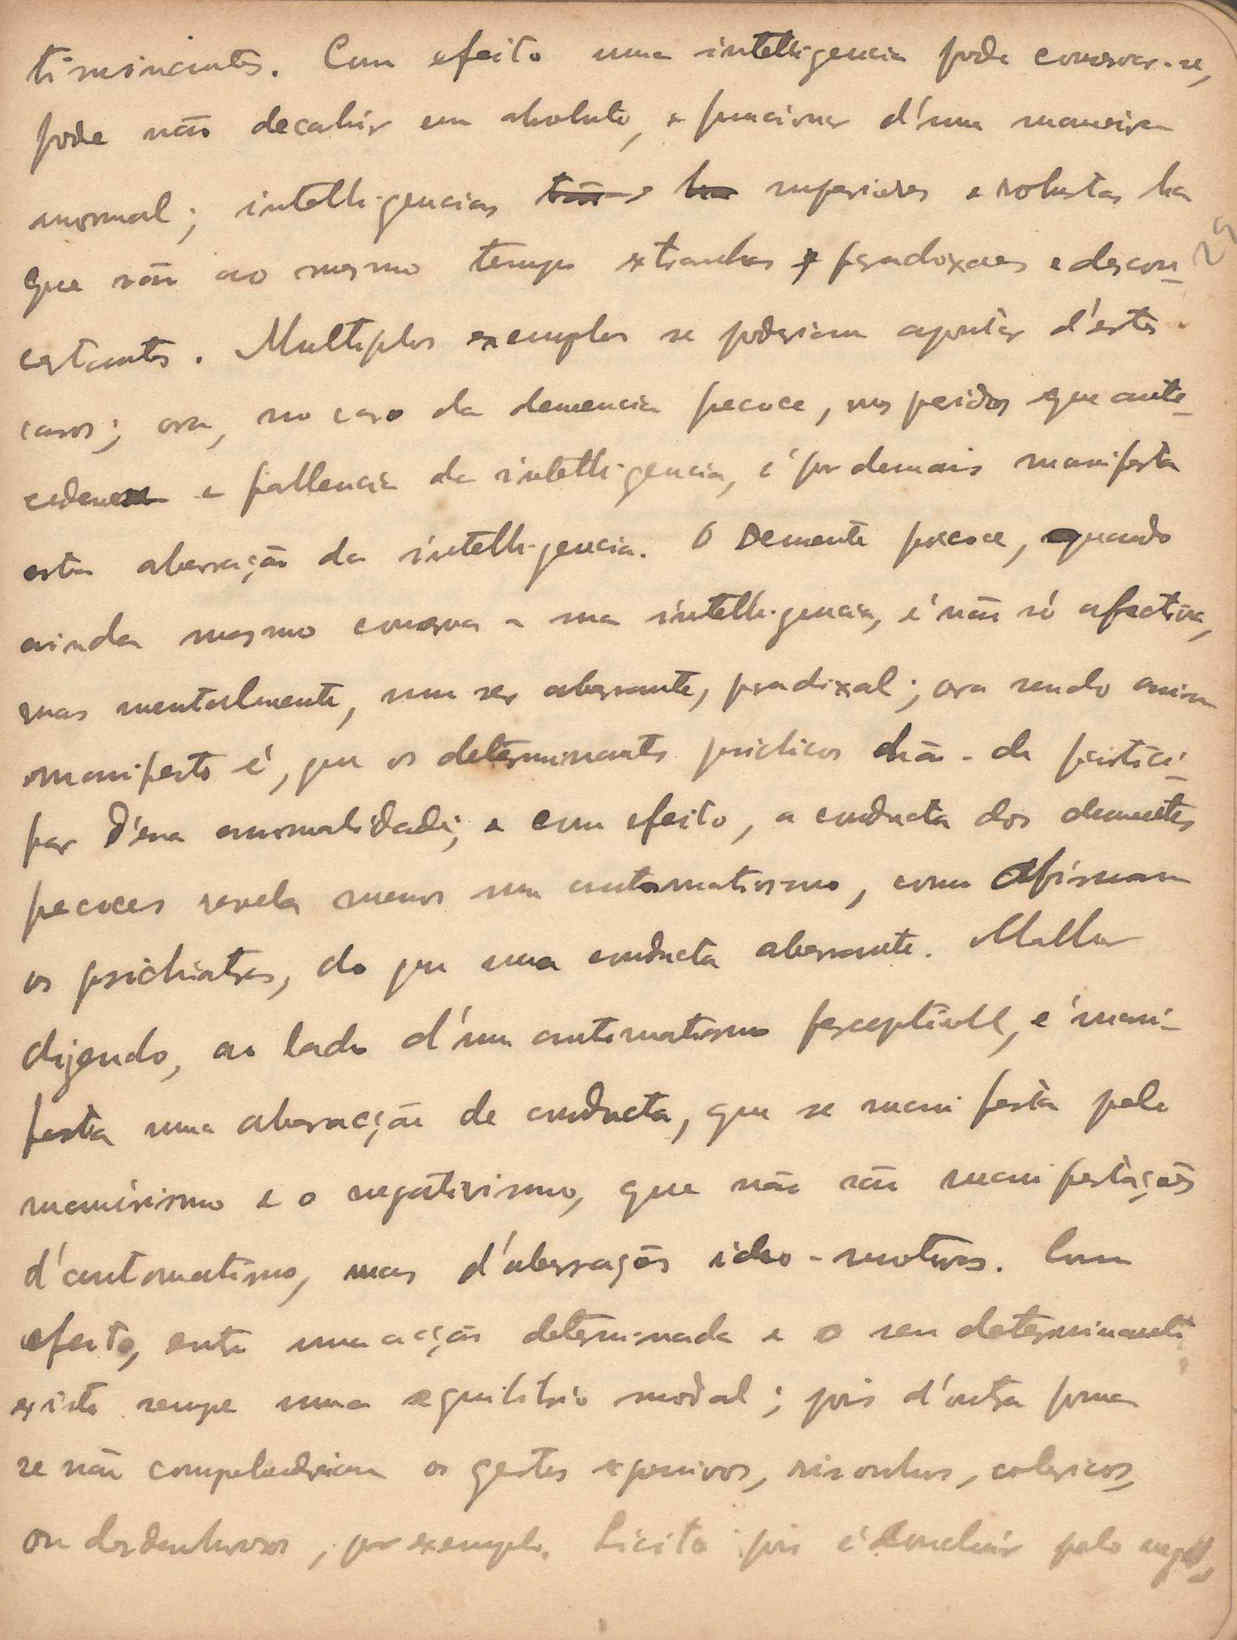 timinantes. Com efeito uma intelligencia pode conservar-se,
pode não decahir em absoluto, e funcionar d'uma maneira
anormal; intelligencias superiores e robustas ha
que são ao mesmo tempo extranhas e paradoxaes e descon-
certantes. Multiplos exemplos se poderiam apontar d'estes
casos; ora, no caso da demencia pecoce, nos periodos que ante-
cedem a fallencia da intelligencia, é por demais manifesta
esta aberração da intelligencia. O Demente precoce, quando
ainda mesmo conserva a sua intelligencia, é não só afectiva,
mas mentalmente, um ser aberrante, pradixal; ora sendo assim
manifesto é, que os determinantes psichicos hão-de partici-
par d'essa anormalidade; e com efeito, a conducta dos dementes
pecoces revela menos um automatismo, como afirmam
os psichiatras, do que uma conducta aberrante. Melhor
dizendo, ao lado d'um automatismo perceptivel, é mani-
festa uma aberracção de conducta, que se manifesta pelo
maneirismo e o negativismo, que não são manifestações
d'automatismo, mas d'aberrações ideo-motivas. Com
efeito, ente uma acção determinada e o seu determinante
existe sempe uma equilibrio modal; pois d'outra forma
se não compehendriam os gestos expansivos, risonhos, colericos,
ou desdenhosos, por exemplo. Licito pois é concluir pelo
29